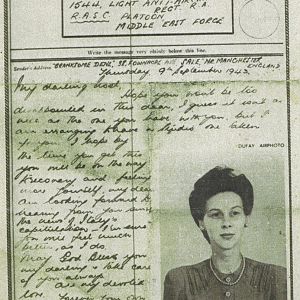 1544, LIGHT ANTI-AIR
REGT. R.A.
R.A.S.C. PLATOON
MIDDLE EAST FORCE
Write the message very plainly below this line.
Sender's Address "BRANKSOME DENE", ROWNACRE AVE SALE NR MANCHESTER
ENGLAND
Thursday 9th September 1943.
My darling
Hope you won't be too
disappointed in this dear, I guess it isn't as
nice as the one you have with you, but I
am arranging to have a studio one taken
for you. I hope by
the time you get this
you will be on the way
to recovery and feeling
more yourself, my dear
am looking forward to
hearing from you since
the news of Italy's
capitulation - I'm sure
you only feel much
better, as I do.
May God Bless you
my darling & take care
of you always.
Am my devoted
love.
Forever Your Own
DUFAY AIRPHOTO